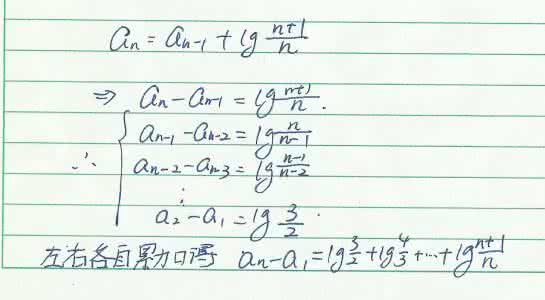 aₙ = aₙ₋₁ + lg (n+1)/n
⇒ aₙ - aₙ₋₁ = lg (n+1)/n .
aₙ₋₁ - aₙ₋₂ = lg n/(n-1)
∴ aₙ₋₂ - aₙ₋₃ = lg (n-1)/(n-2)
⋮
a₂ - a₁ = lg 3/2 .
左右各自累加得 aₙ - a₁ = lg 3/2 + lg 4/3 + … + lg (n+1)/n